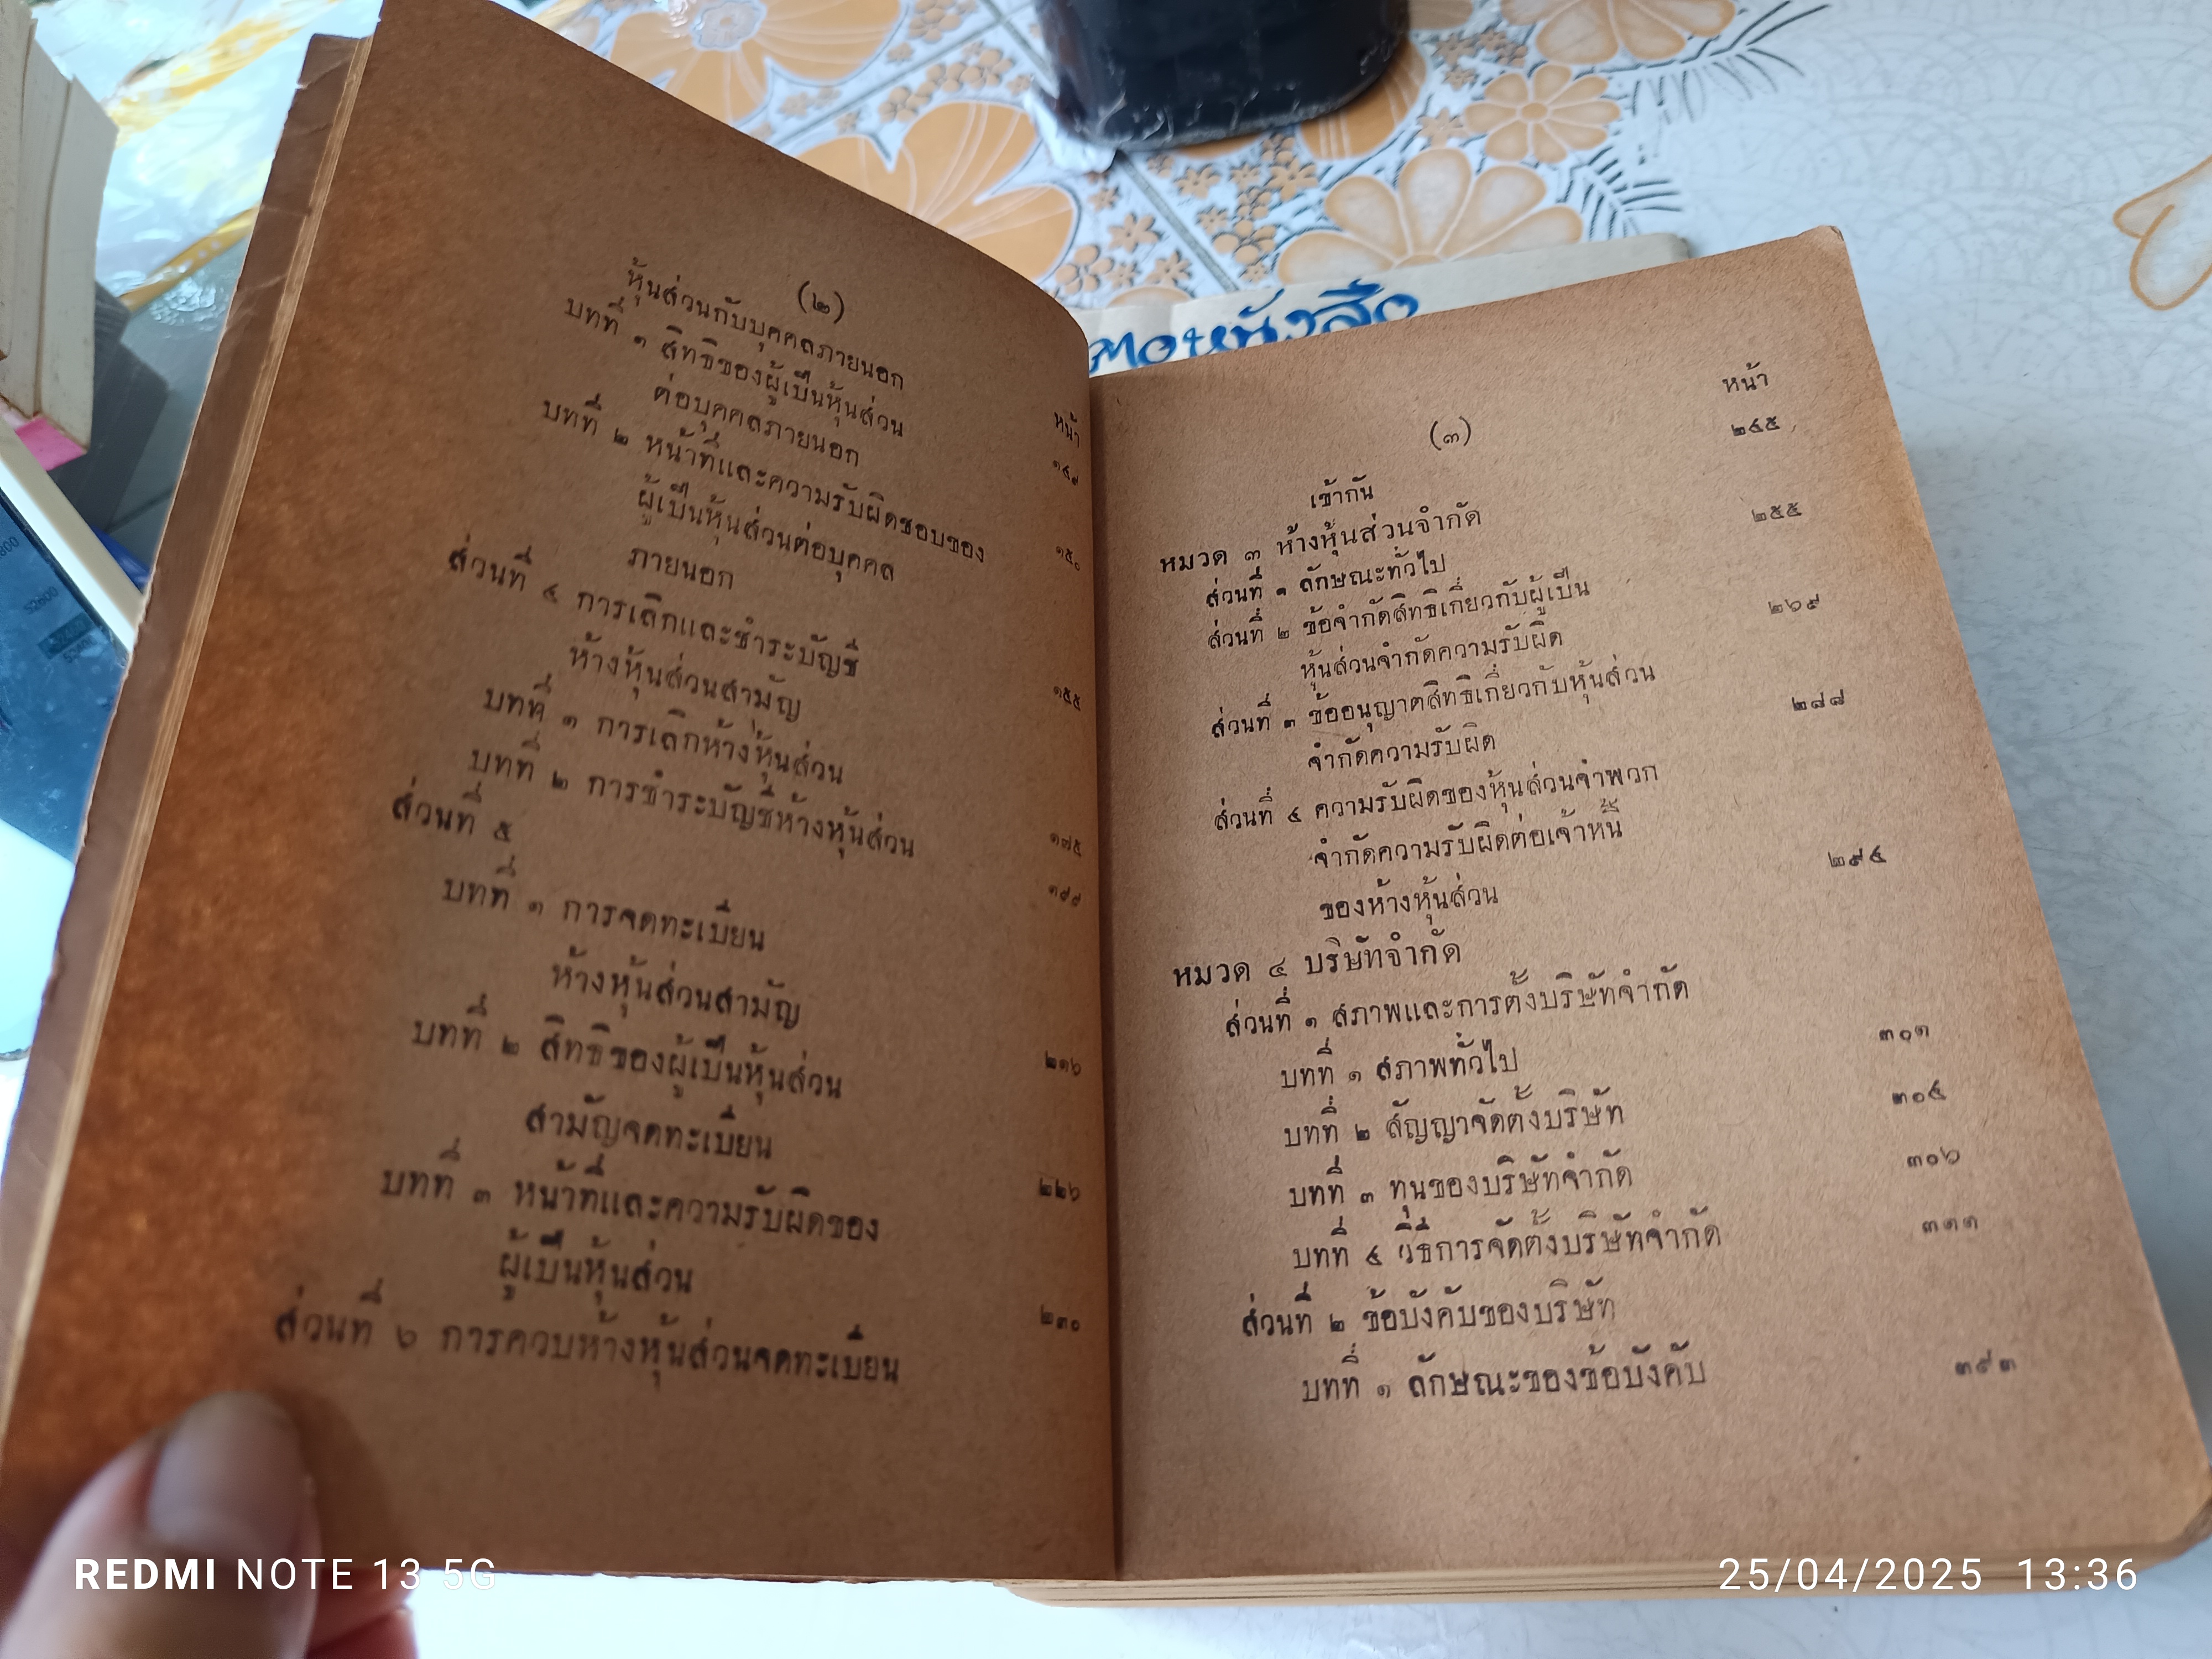 (๒)
หน้า
หุ้นส่วนกับบุคคลภายนอก
บทที่ ๑ สิทธิของผู้เป็นหุ้นส่วน
ต่อบุคคลภายนอก ๑๔๙
บทที่ ๒ หน้าที่และความรับผิดชอบของ
ผู้เป็นหุ้นส่วนต่อบุคคล
ภายนอก ๑๕๐
ส่วนที่ ๔ การเลิกและชำระบัญชี
ห้างหุ้นส่วนสามัญ
บทที่ ๑ การเลิกห้างหุ้นส่วน ๑๕๕
บทที่ ๒ การชำระบัญชีห้างหุ้นส่วน ๑๗๕
ส่วนที่ ๕
บทที่ ๑ การจดทะเบียน
ห้างหุ้นส่วนสามัญ ๑๙๙
บทที่ ๒ สิทธิของผู้เป็นหุ้นส่วน
สามัญจดทะเบียน ๒๑๖
บทที่ ๓ หน้าที่และความรับผิดของ
ผู้เป็นหุ้นส่วน ๒๒๖
ส่วนที่ ๖ การควบห้างหุ้นส่วนจดทะเบียน ๒๓๐
ต่อหนังสือ
(๓)
หน้า
เข้ากัน ๒๔๕
หมวด ๓ ห้างหุ้นส่วนจำกัด
ส่วนที่ ๑ ลักษณะทั่วไป ๒๕๕
ส่วนที่ ๒ ข้อจำกัดสิทธิเกี่ยวกับผู้เป็น
หุ้นส่วนจำกัดความรับผิด ๒๖๙
ส่วนที่ ๓ ข้ออนุญาตสิทธิเกี่ยวกับหุ้นส่วน
จำกัดความรับผิด ๒๘๘
ส่วนที่ ๔ ความรับผิดของหุ้นส่วนจำพวก
จำกัดความรับผิดต่อเจ้าหนี้
ของห้างหุ้นส่วน ๒๙๔
หมวด ๔ บริษัทจำกัด
ส่วนที่ ๑ สภาพและการตั้งบริษัทจำกัด
บทที่ ๑ สภาพทั่วไป ๓๐๑
บทที่ ๒ สัญญาจัดตั้งบริษัท ๓๐๔
บทที่ ๓ ทุนของบริษัทจำกัด ๓๐๖
บทที่ ๔ วิธีการจัดตั้งบริษัทจำกัด ๓๑๑
ส่วนที่ ๒ ข้อบังคับของบริษัท
บทที่ ๑ ลักษณะของข้อบังคับ ๓๙๓
REDMI NOTE 13 5G
25/04/2025 13:36